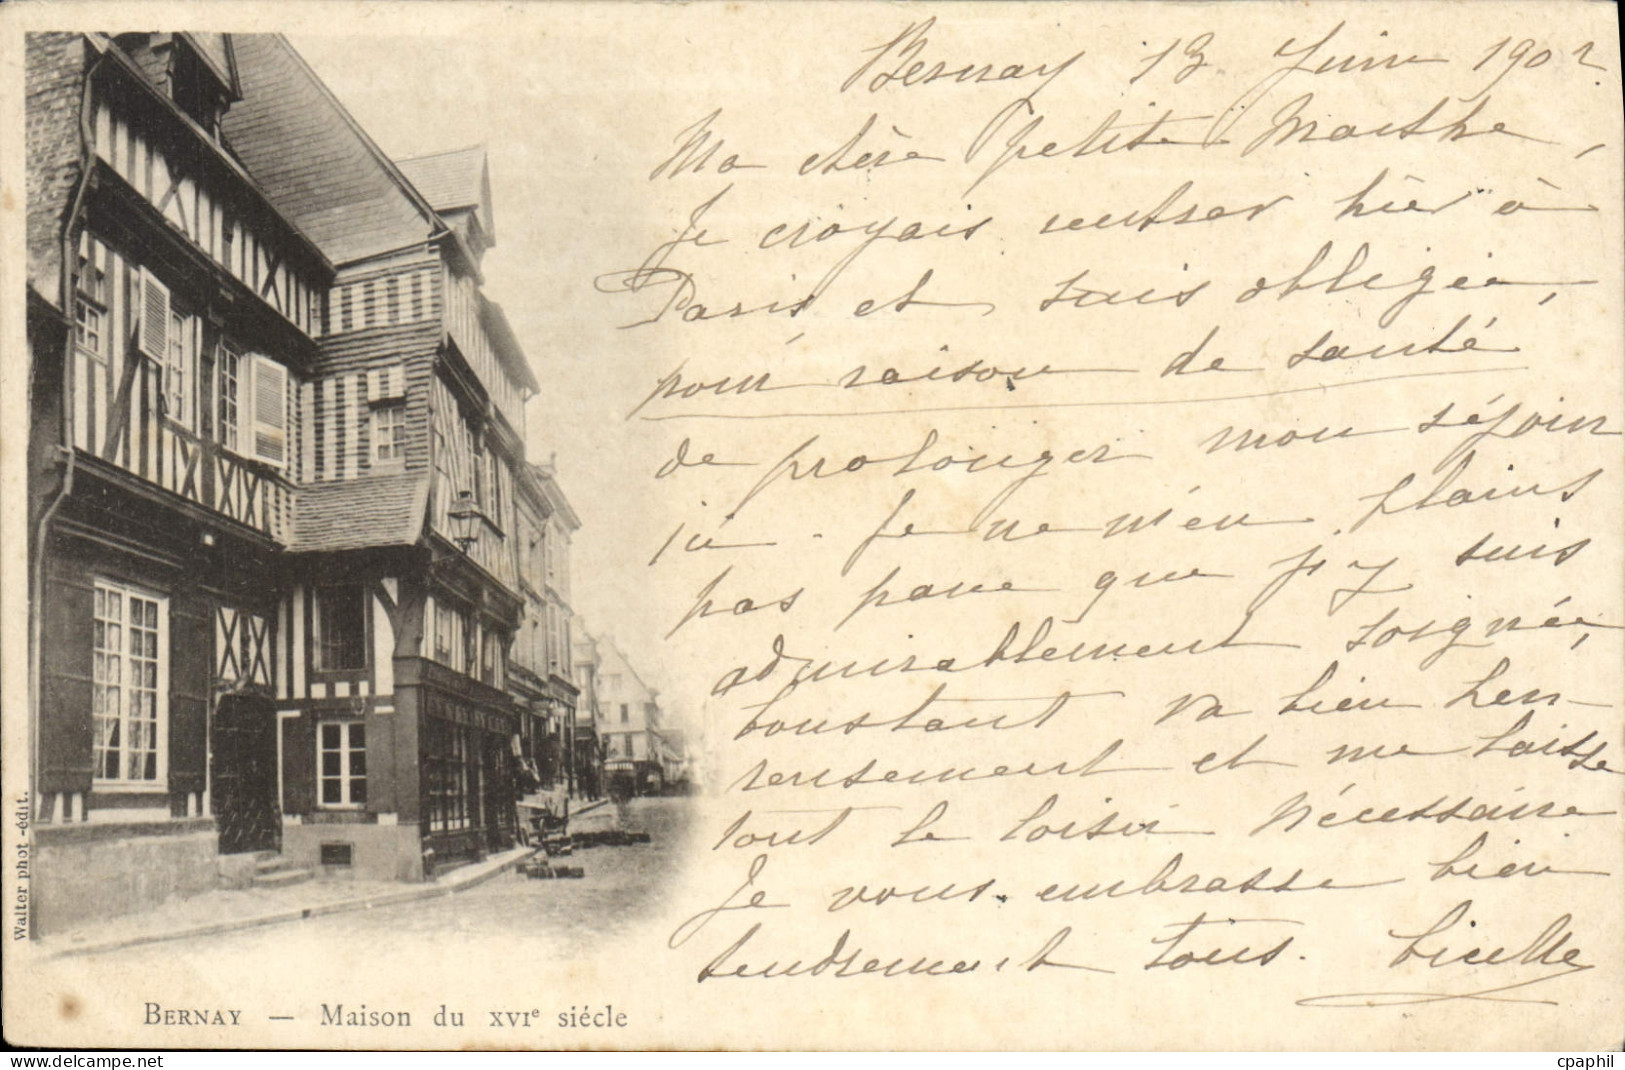 Bernay 13 Juin 1902.
Ma chère petite Marthe,
Je croyais rentrer hier à
Paris et suis obligée,
pour raison de santé
de prolonger mon séjour
ici. Je ne m'en plains
pas parce que j'y suis
admirablement soignée,
Constant va bien heu-
reusement et me laisse
tout le loisir nécessaire
Je vous embrasse bien
tendrement tous.
Walter phot.-édit.
BERNAY — Maison du XVIe siécle
www.delcampe.net
cpaphil